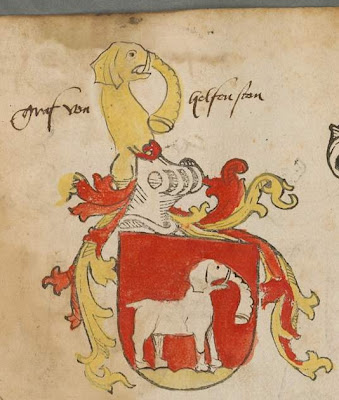 graf von helfenstan